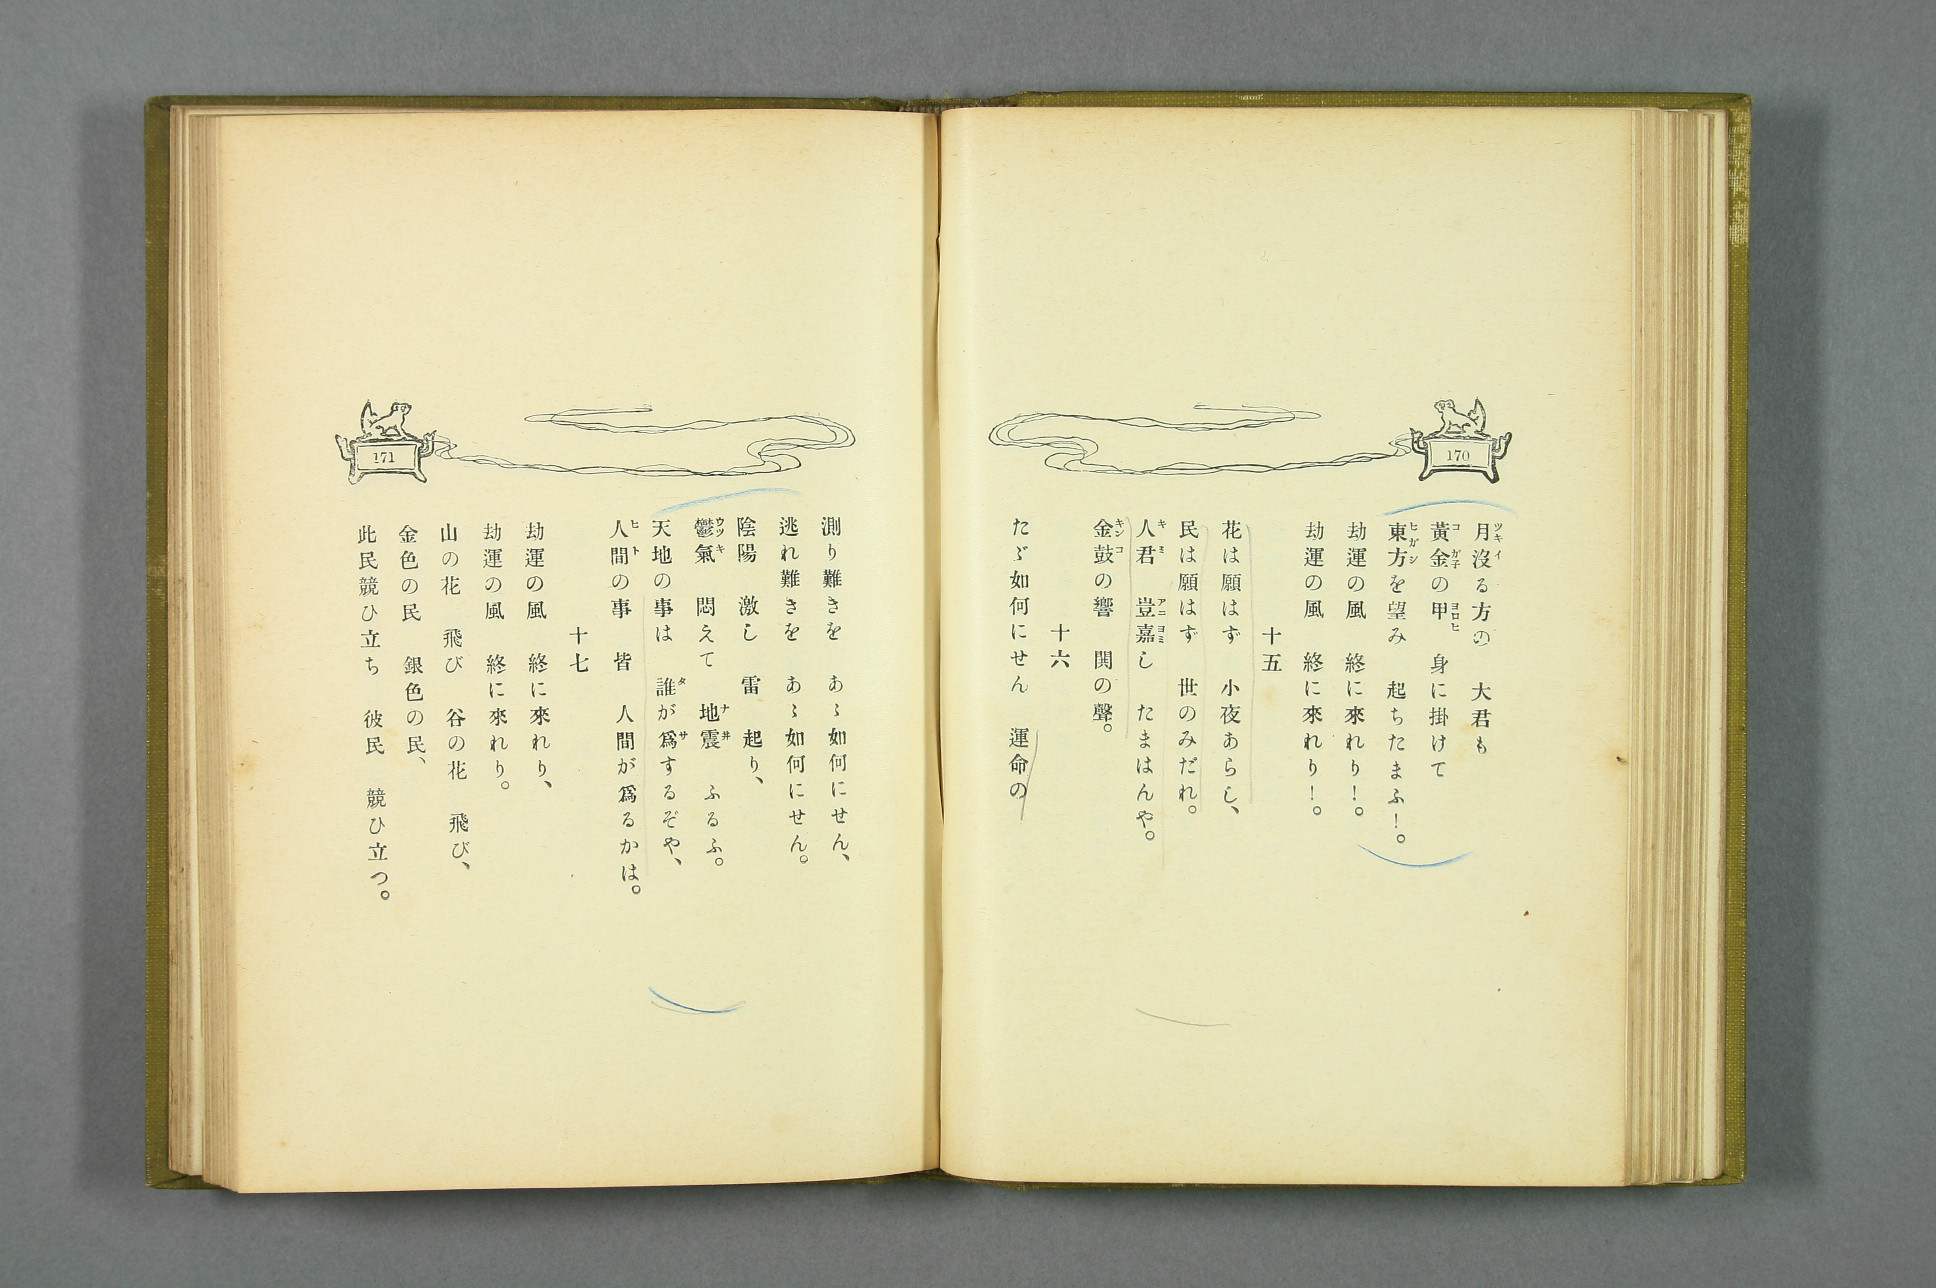 170
月沒る方の　大君も
黃金の甲　身に掛けて
東方を望み　起ちたまふ！。
劫運の風　終に來れり！。
劫運の風　終に來れり！。
十五
花は願はず　小夜あらし、
民は願はず　世のみだれ。
人君　豈嘉し　たまはんや。
金鼓の響　鬨の聲。
十六
たゞ如何にせん　運命の
171
測り難きを　あゝ如何にせん、
逃れ難きを　あゝ如何にせん。
陰陽　激し　雷　起り、
鬱氣　悶えて　地震　ふるふ。
天地の事は　誰が爲するぞや、
人間の事　皆　人間が爲るかは。
十七
劫運の風　終に來れり、
劫運の風　終に來れり。
山の花　飛び　谷の花　飛び、
金色の民　銀色の民、
此民競ひ立ち　彼民　競ひ立つ。